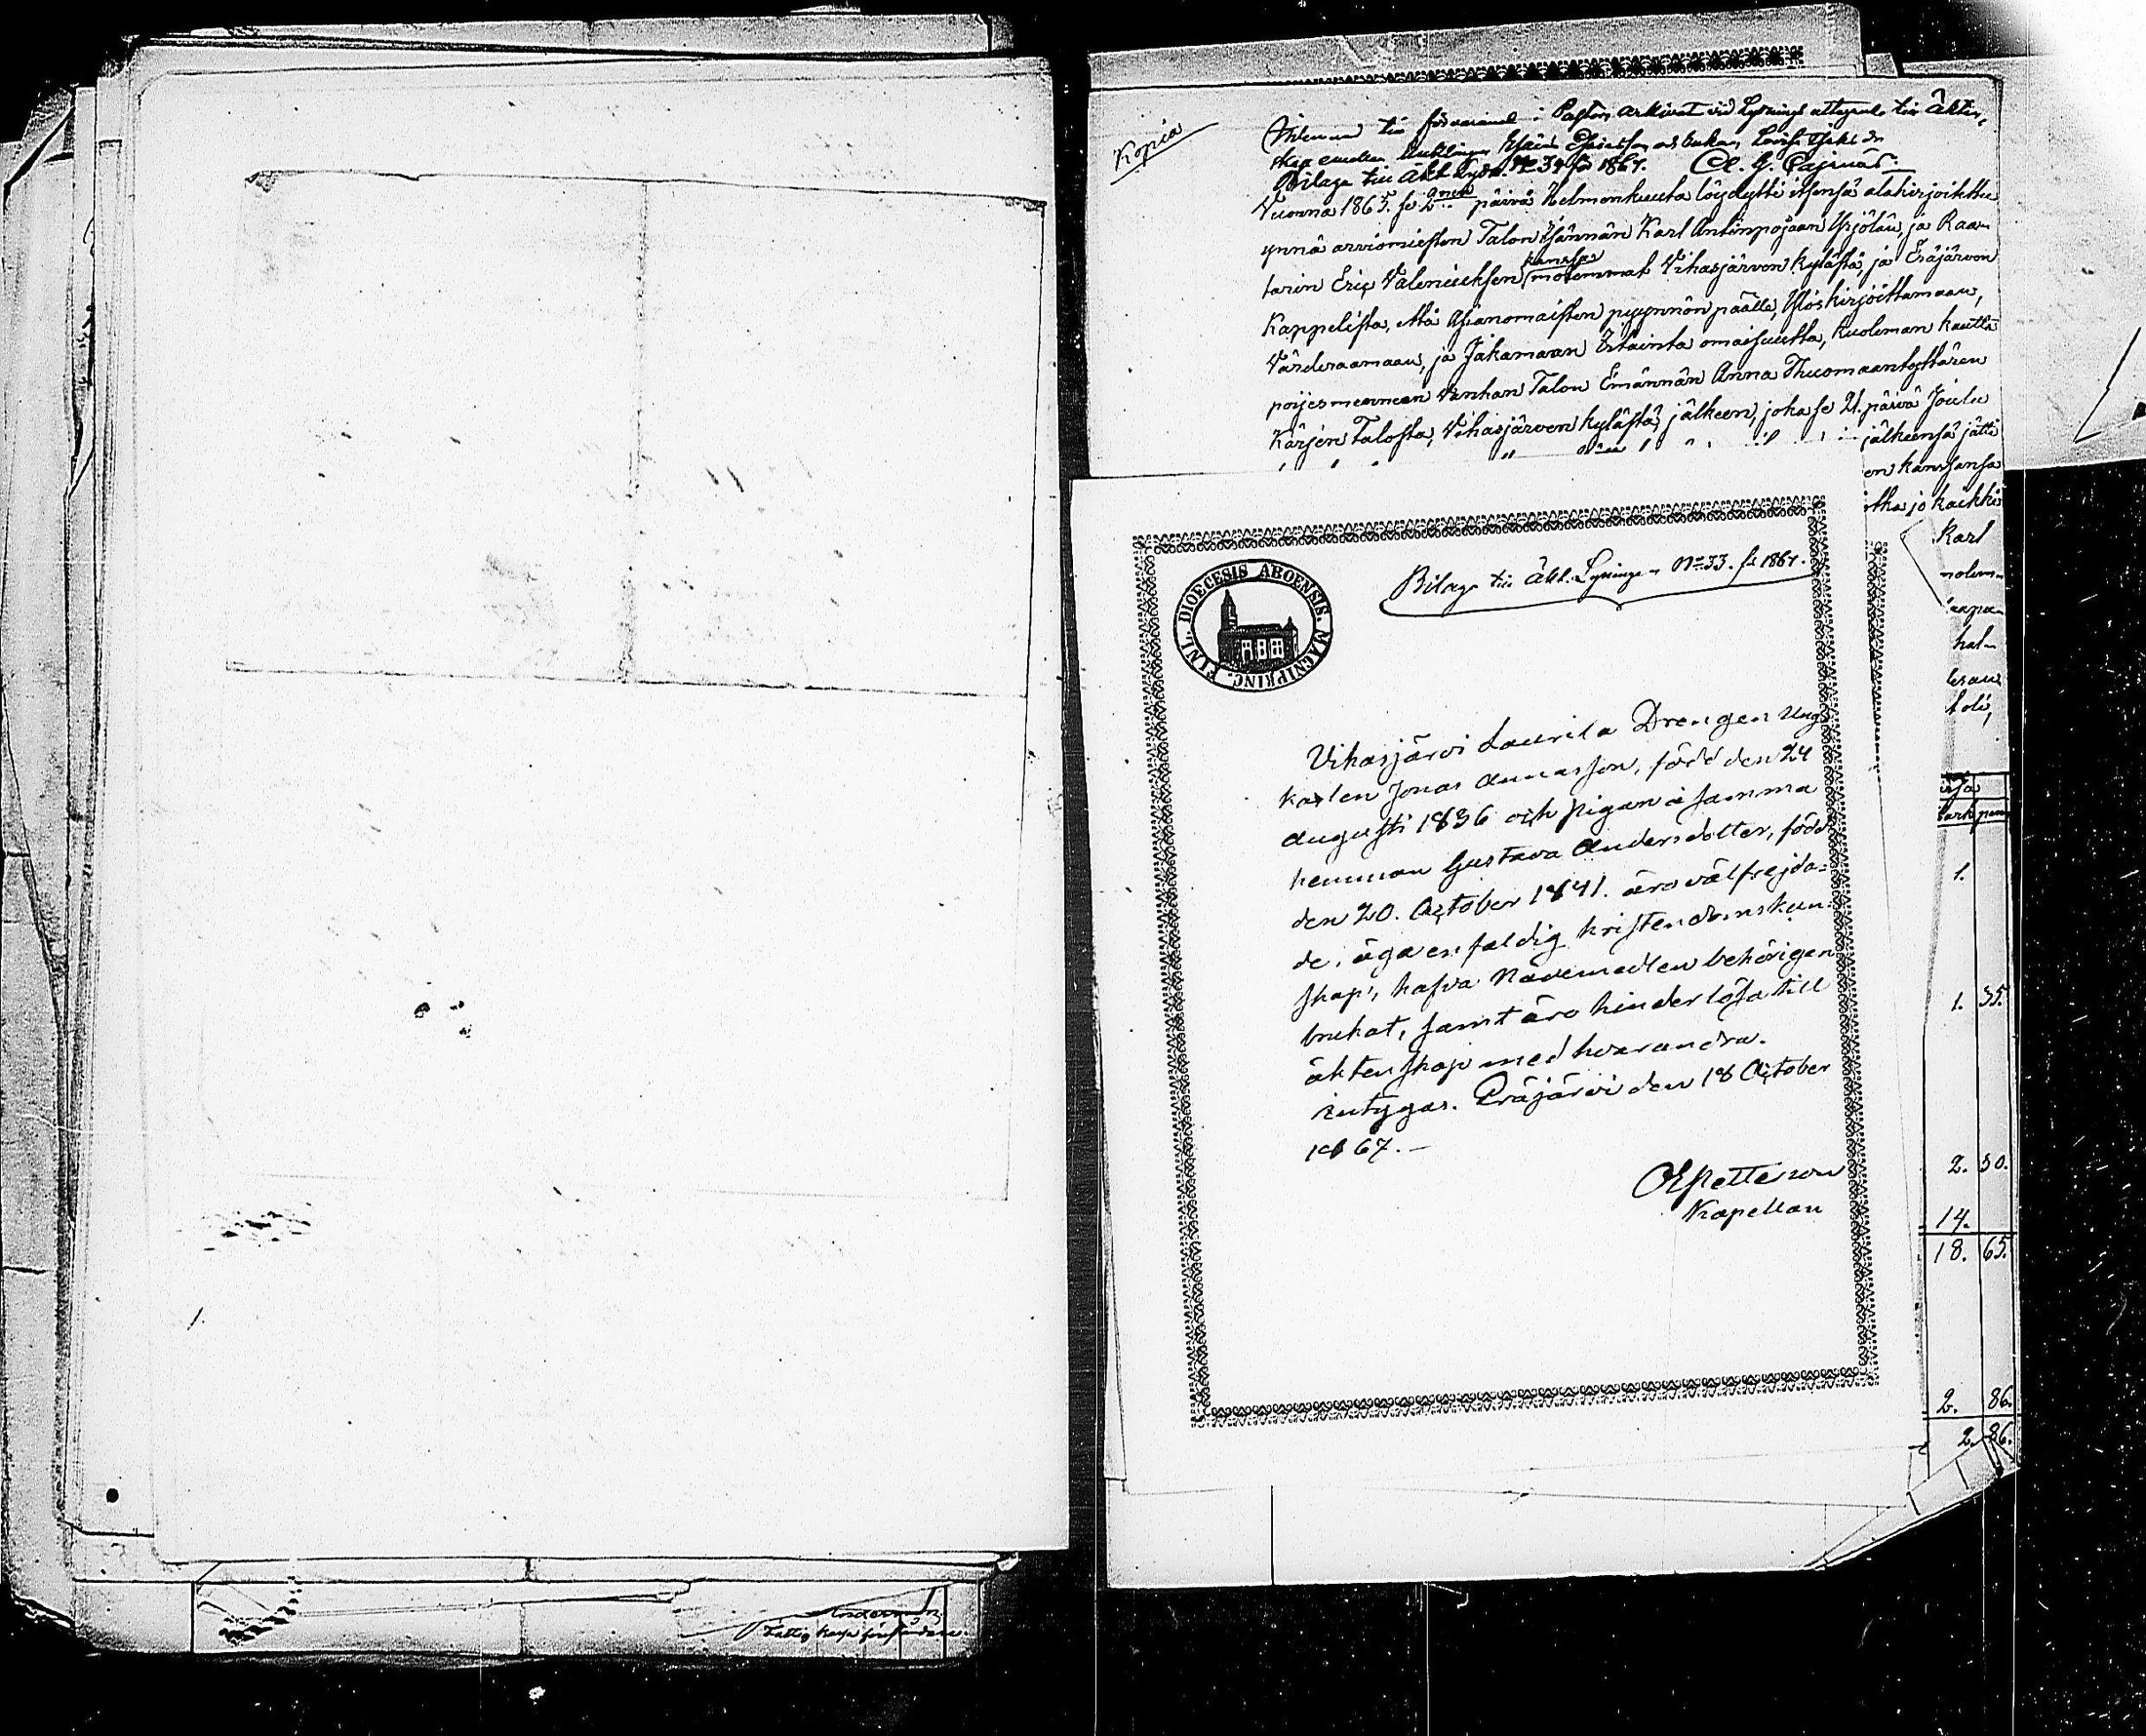 Kopia
till förvarande i Pastors Arkivet vid Lysnings uttagande till Äkten-
skap emellan
Bilaga till Äkt. Lysn. No 34 för 1867.
Vuonna 1865 se 2nen päivä Helmonkuuta löydytti itsensä alakirjoitettu
ynnä arviomiesten Talon Isännän Karl Antinpojaan Yrjölän, ja Raa-
tarin Eric Valeniuksen kanssa molemmat Vihasjärven kylästä, ja Eräjärven
Kappelista, että Asianomaisten pyynnön päälle, Ylöskirjoittamaan,
Värderaamaan, ja Jakamaan Irtainta omaisuutta, Kuoleman kautta
poijesmenneen Vanhan Talon Emännän Anna Thuomaantyttären
Kärjen Talosta, Vihasjärven kylästä, jälkeen, joka se 21. päivä Joulu
jälkeensä jätti
en kanssansa
itka jo kaikki
Karl
molem-
hal-
oli,
Bilaga till Äkt. Lysninge- No 33. för 1867.
FINL. DIOECESIS ABOENSIS. MAGNIPRINC.
Vihasjärvi Laurila Drengen Ung
karlen Jonas Annasson, född den 24
Augusti 1836 och pigan å samma
hemman Gustava Andersdotter, född
den 20. October 1841. äro välfrejda-
de, äga enfaldig kristendomskun-
skap, hafva Nådemedlen behörigen
brukat, samt äro hinderlösa till
äktenskap med hvarandra.
intygas. Eräjärvi den 18 October
1867.-
Petterson
Kapellan
1.
1. 35.
2. 30.
14.
18. 65.
2. 86.
2. 86.